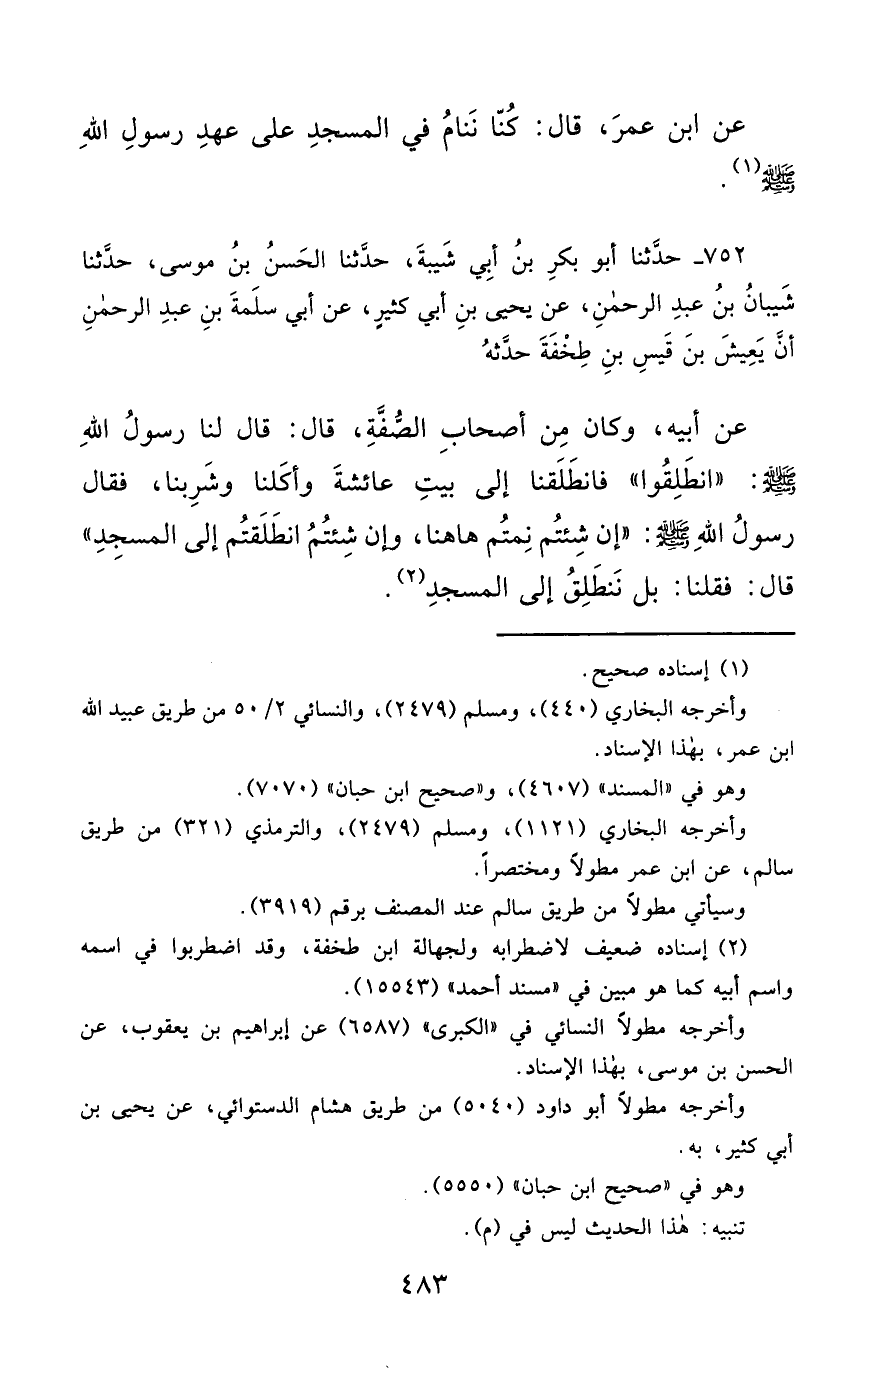 عن ابن عمرَ، قال: كُنّا نَنامُ في المسجدِ على عهدِ رسولِ اللهِ
ﷺ(١).
٧٥٢ـ حدَّثنا أبو بكرِ بنُ أبِي شَيبةَ، حدَّثنا الحَسنُ بنُ موسى، حدَّثنا
شَيبانُ بنُ عبدِ الرحمٰنِ، عن يحيى بنِ أبي كثيرٍ، عن أبي سلَمةَ بنِ عبدِ الرحمٰنِ
أنَّ يَعِيشَ بنَ قَيسِ بنِ طِخْفَةَ حدَّثهُ
عن أبيه، وكان مِن أصحابِ الصُّفَّةِ، قال: قال لنا رسولُ اللهِ
ﷺ: «انطَلِقُوا» فانطَلَقنا إلى بيتِ عائشةَ وأكَلنا وشَرِبنا، فقال
رسولُ اللهِ ﷺ: «إن شِئتُم نِمتُم هاهنا، وإن شِئتُمُ انطَلَقتُم إلى المسجِدِ»
قال: فقلنا: بل نَنطَلِقُ إلى المسجدِ(٢).
(١) إسناده صحيح.
وأخرجه البخاري (٤٤٠)، ومسلم (٢٤٧٩)، والنسائي ٢/ ٥٠ من طريق عبيد الله
ابن عمر، بهٰذا الإسناد.
وهو في «المسند» (٤٦٠٧)، و«صحيح ابن حبان» (٧٠٧٠).
وأخرجه البخاري (١١٢١)، ومسلم (٢٤٧٩)، والترمذي (٣٢١) من طريق
سالم، عن ابن عمر مطولاً ومختصراً.
وسيأتي مطولاً من طريق سالم عند المصنف برقم (٣٩١٩).
(٢) إسناده ضعيف لاضطرابه ولجهالة ابن طخفة، وقد اضطربوا في اسمه
واسم أبيه كما هو مبين في «مسند أحمد» (١٥٥٤٣).
وأخرجه مطولاً النسائي في «الكبرى» (٦٥٨٧) عن إبراهيم بن يعقوب، عن
الحسن بن موسى، بهٰذا الإسناد.
وأخرجه مطولاً أبو داود (٥٠٤٠) من طريق هشام الدستوائي، عن يحيى بن
أبي كثير، به.
وهو في «صحيح ابن حبان» (٥٥٥٠).
تنبيه: هٰذا الحديث ليس في (م).
٤٨٣